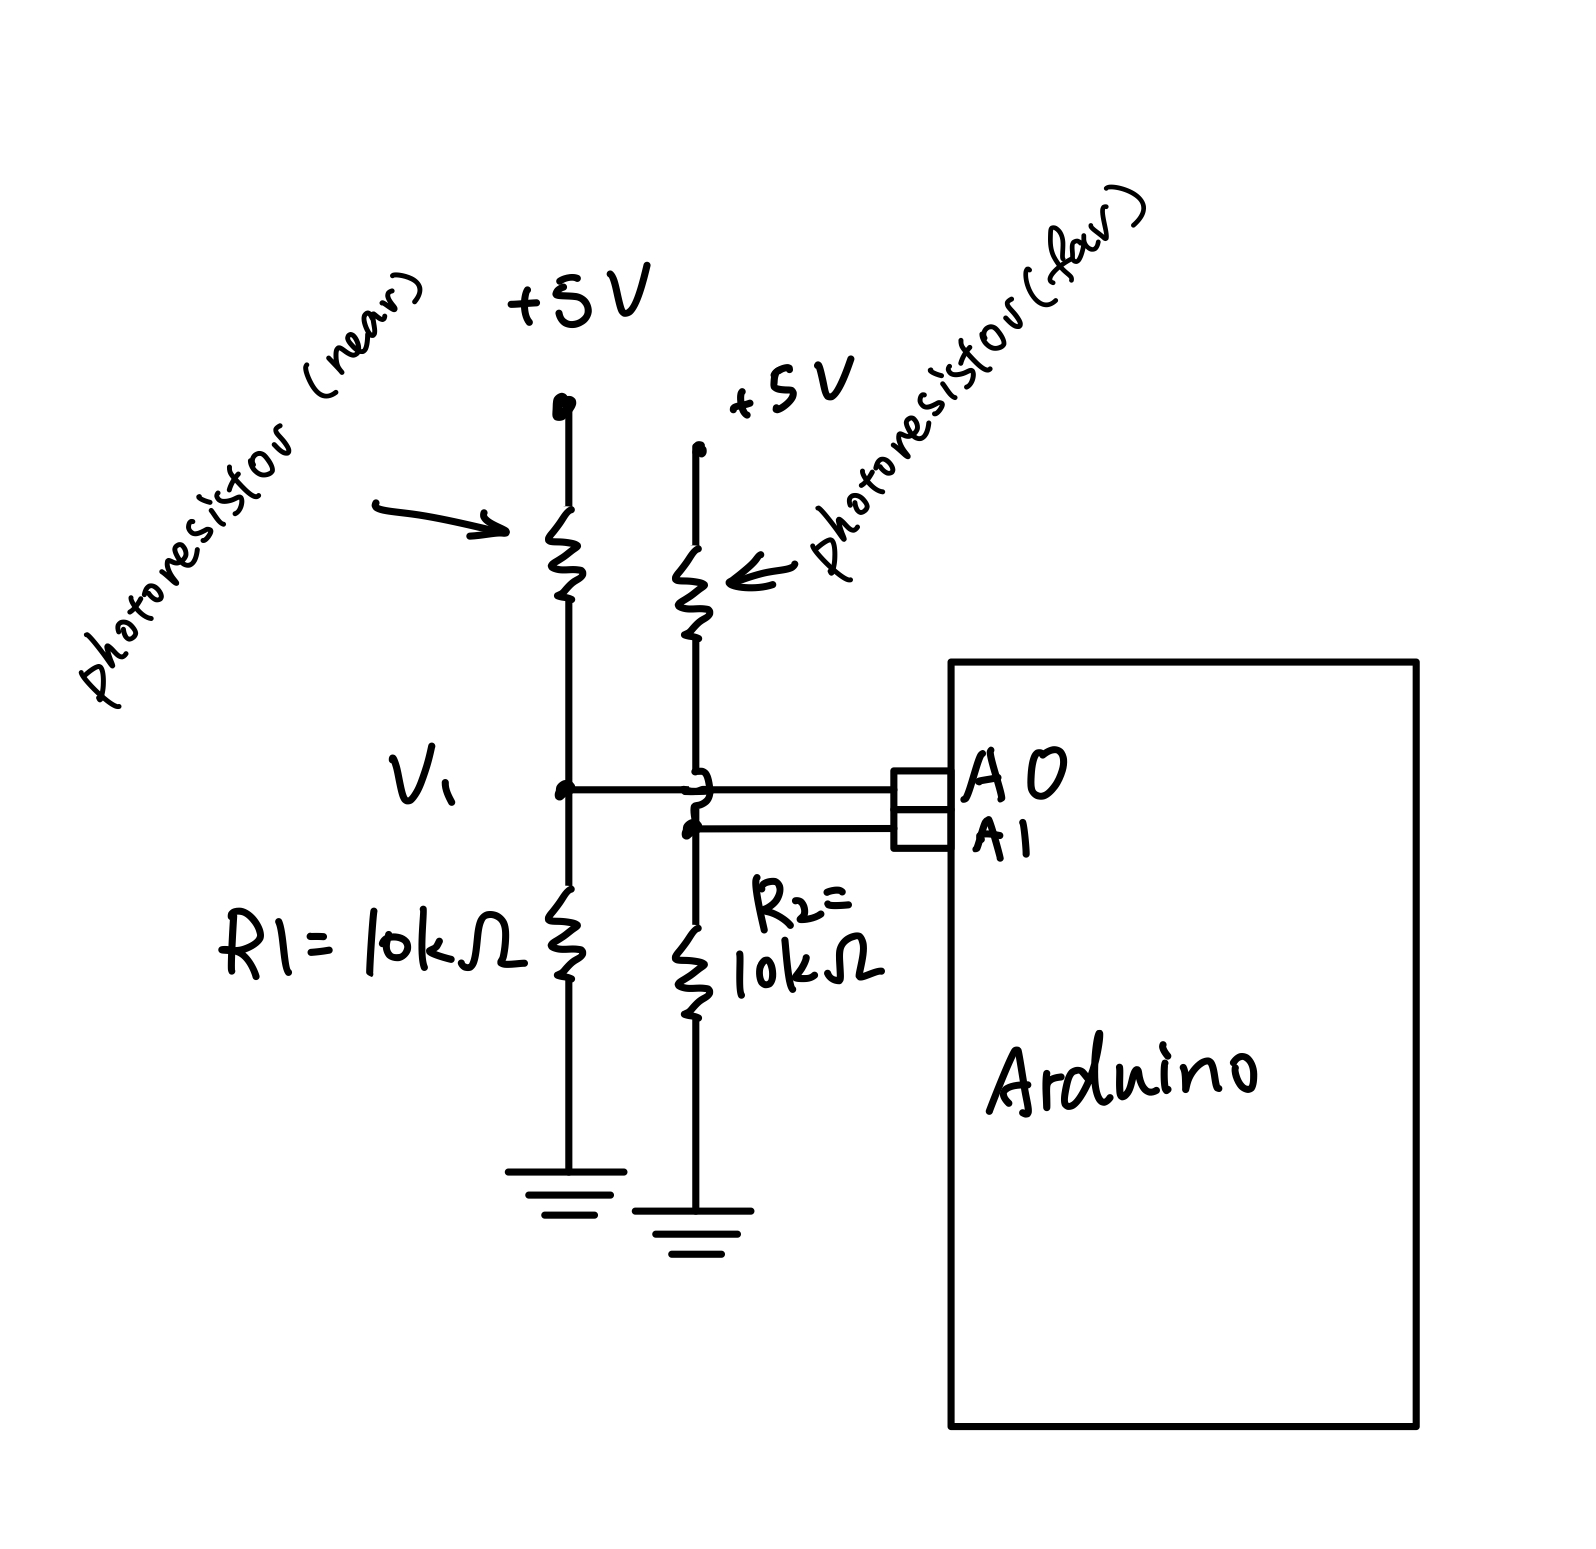 photoresistor (near)
+5V
+5V
photoresistor (far)
V1
A0
A1
R1= 10kΩ
R2=
10kΩ
Arduino